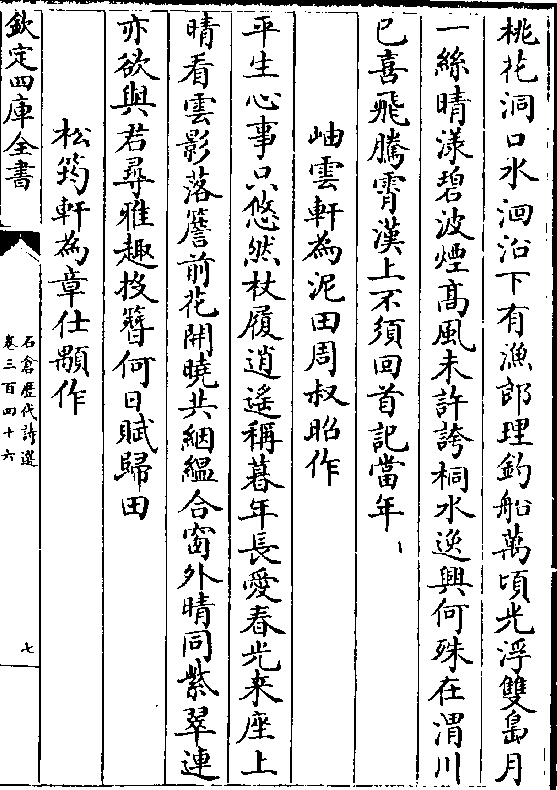 桃花洞口水洄沿下有漁郎理釣船萬頃光浮雙島月
一絲晴漾碧波煙髙風未許誇桐水逸興何殊在渭川
已喜飛騰霄漢上不須回首記當年
岫雲軒為泥田周叔昭作
平生心事只悠然杖履逍遙稱暮年長愛春光来座上
晴看雲影落簷前花開曉共絪緼合窗外晴同紫翠連
亦欲與君尋雅趣投簪何日賦歸田
松筠軒為章仕顒作
欽定四庫全書
石倉歴代詩選
卷三百四十六
七